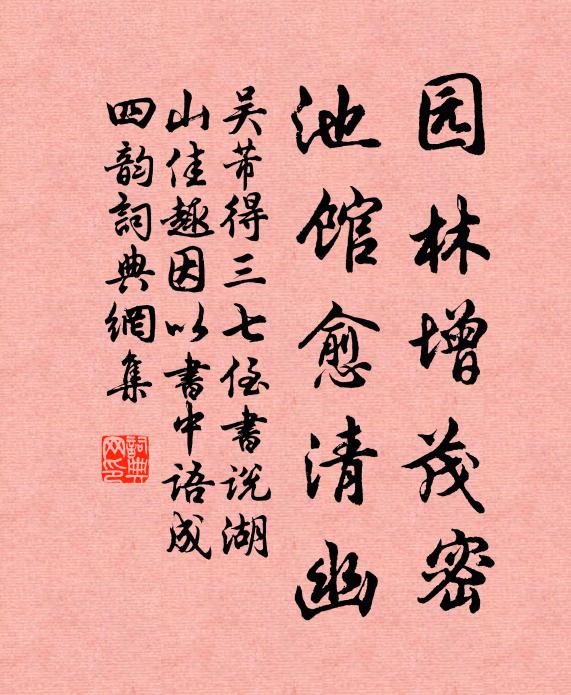 园林增茂密
池馆愈清幽
吴芾得三七侄書说湖
山佳趣因以書中语成
四韵詞典網集
詞典网印